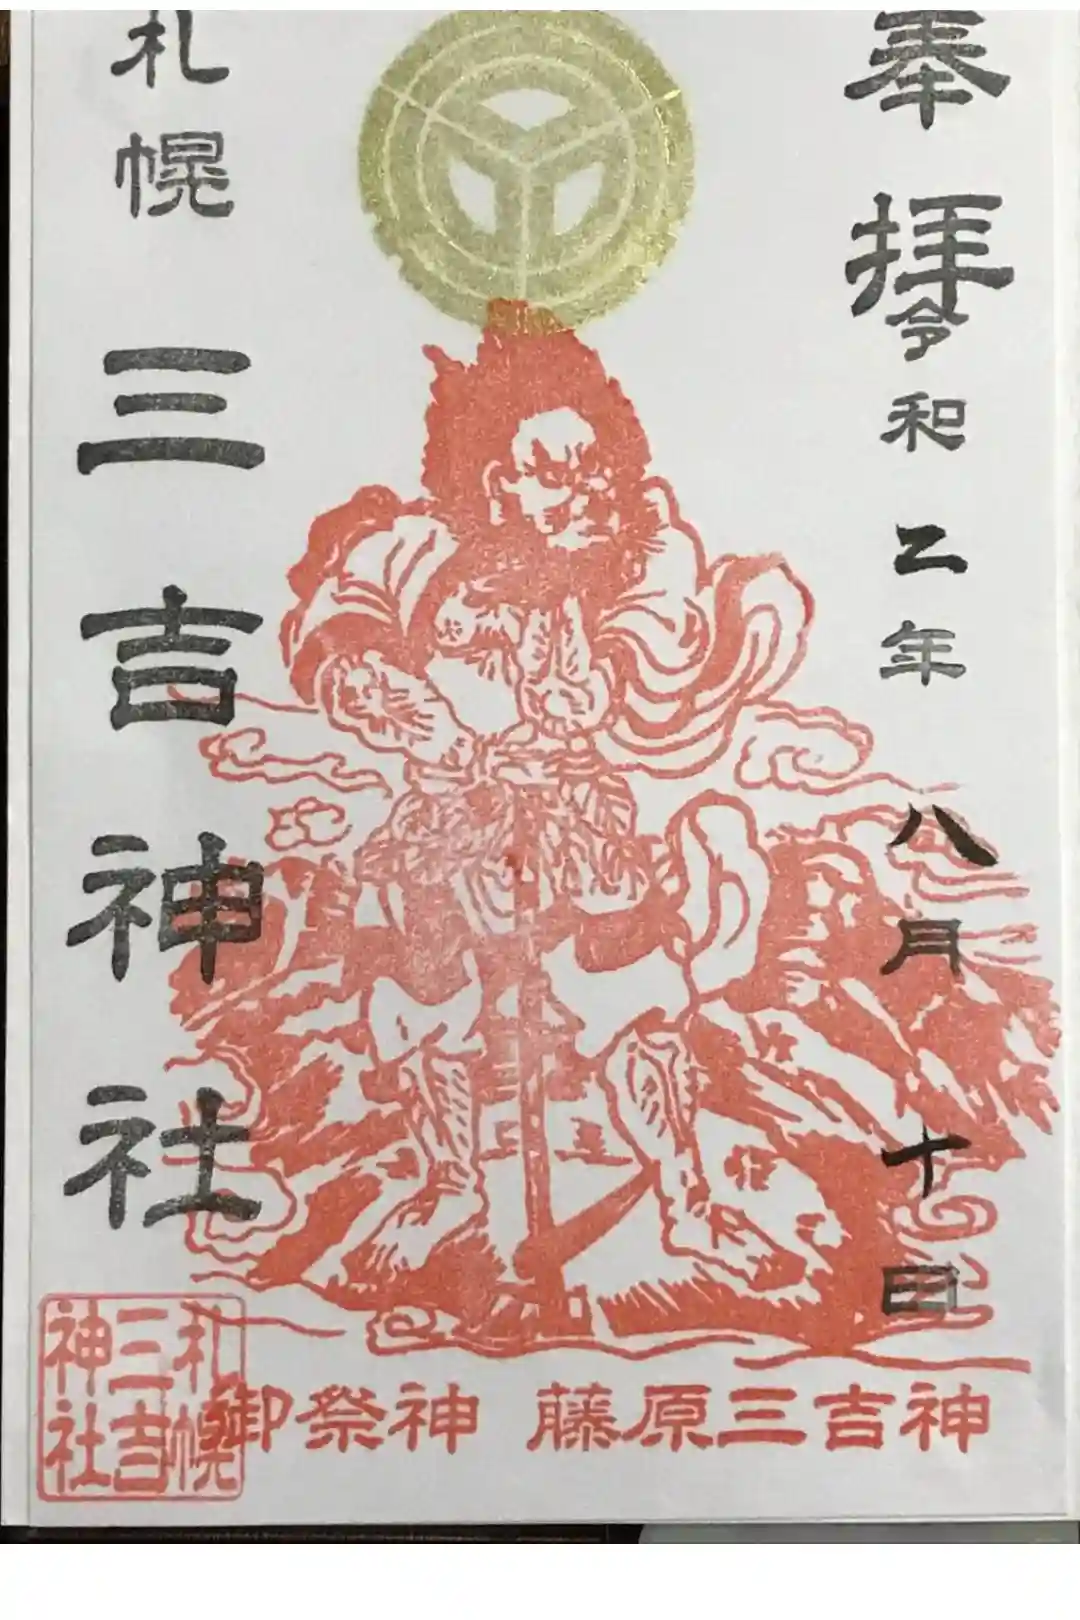 奉拝
令和二年八月十日
札幌三吉神社
札幌
三吉
神社
御祭神 藤原三吉神